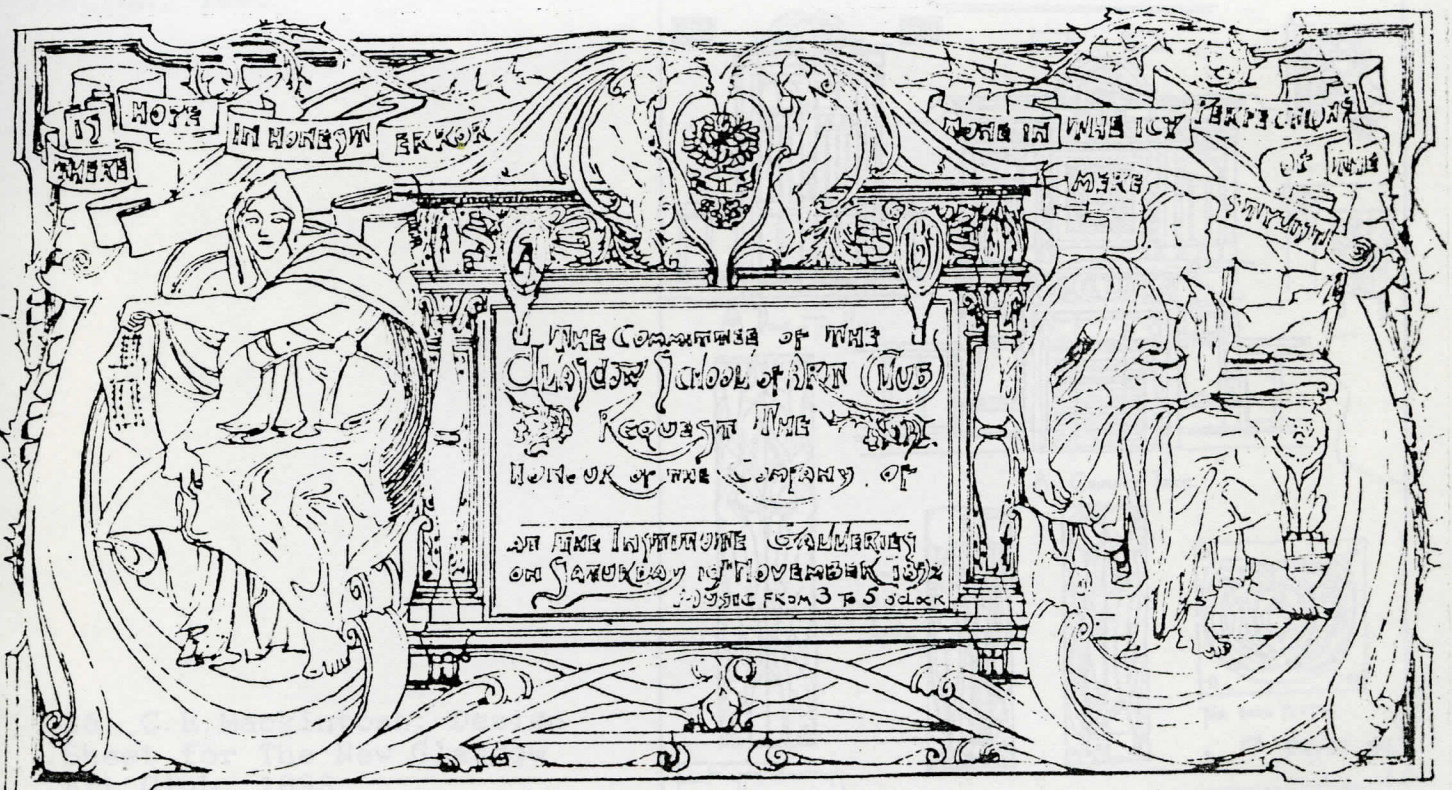 THERE
IS
HOPE
IN HONEST
ERROR
NONE IN
THE ICY
PERFECTIONS
OF THE
MERE
STYLIST
THE COMMITTEE OF THE
GLASGOW SCHOOL of ART CLUB
REQUEST THE
HONOUR OF THE COMPANY OF
AT THE INSTITUTE GALLERIES
ON SATURDAY 19TH NOVEMBER 1892
MUSIC FROM 3 TO 5 oclock